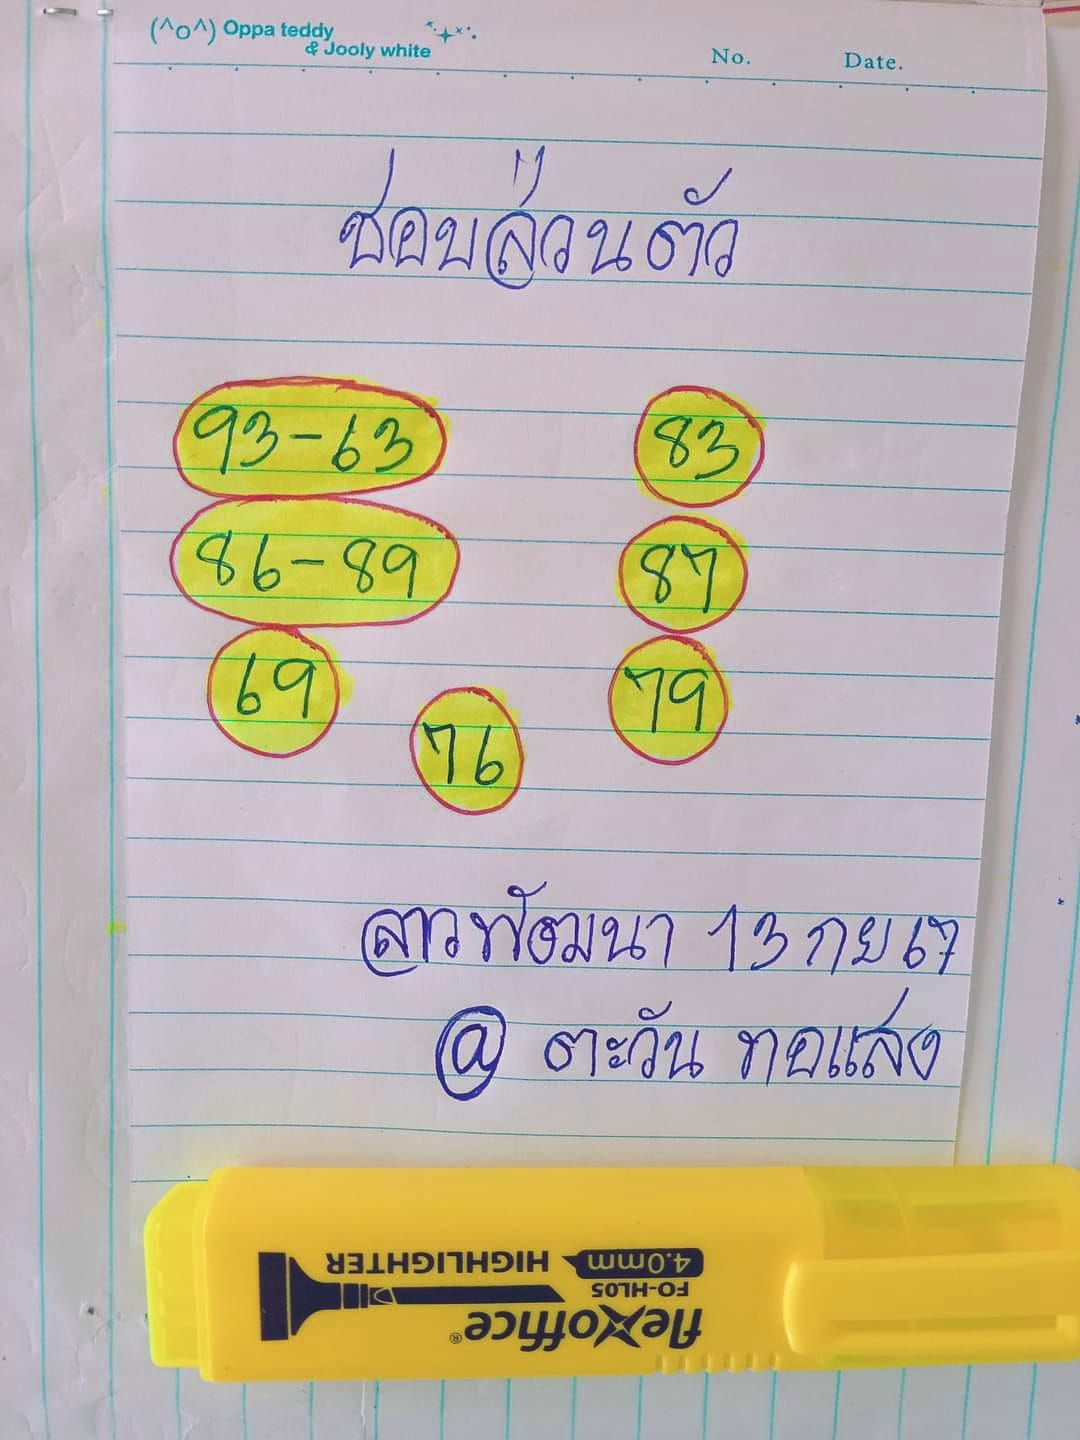 (^o^) Oppa teddy
& Jooly white
No. Date.
ชอบส่วนตัว
93-63 83
86-89 87
69 79
76
ลาวพัฒนา 13 กย 67
@ ตะวัน ทอแสง
flexoffice®
FO-HL05
HIGHLIGHTER 4.0mm